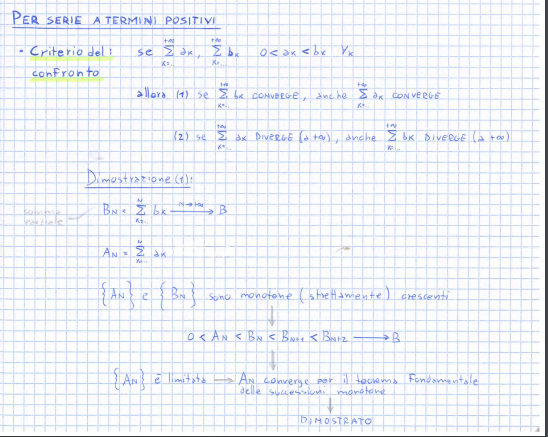 PER SERIE A TERMINI POSITIVI
• Criterio del: se +∞ Σ k=.. ak, +∞ Σ k=.. bk 0 < ak < bk ∀k
confronto
allora (1) se +∞ Σ k=.. bk CONVERGE, anche +∞ Σ k=.. ak CONVERGE
(2) se +∞ Σ k=.. ak DIVERGE (a +∞), anche +∞ Σ k=.. bk DIVERGE (a +∞)
Dimostrazione (1):
somma parziale BN = N Σ k=.. bk N→+∞ → B
AN = N Σ k=.. ak
{AN} e {BN} sono monotone (strettamente) crescenti
0 < AN < BN < BN+1 < BN+2 → B
{AN} è limitata → AN converge per il teorema Fondamentale
delle successioni monotone
DIMOSTRATO